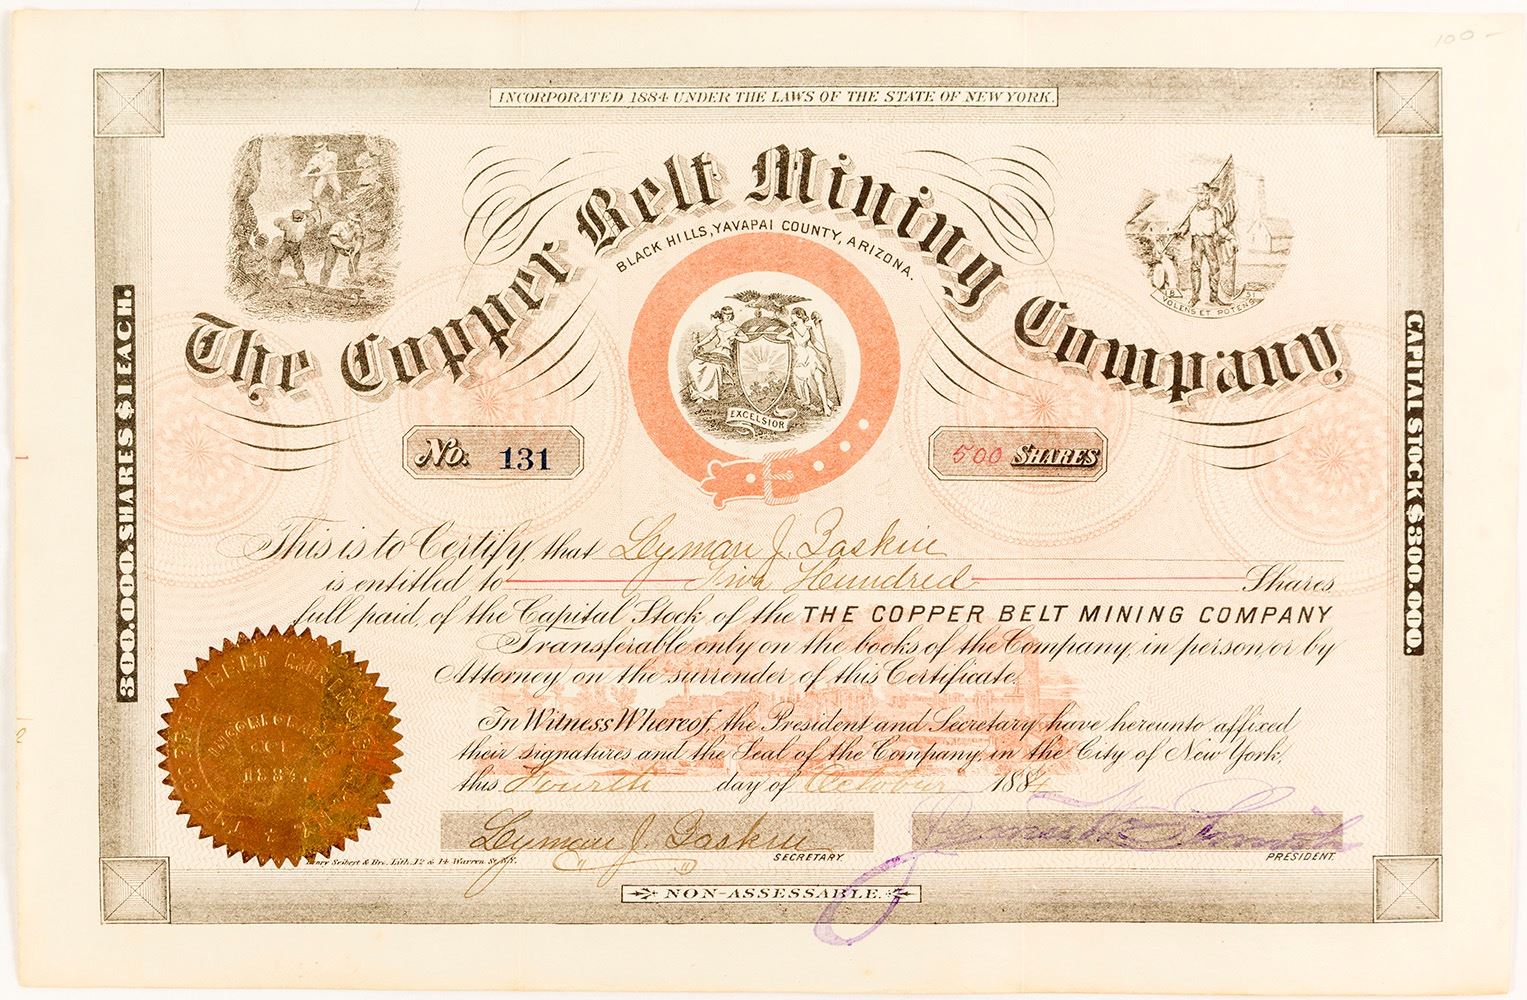 100 -
INCORPORATED 1884 UNDER THE LAWS OF THE STATE OF NEW YORK.
The Copper Belt Mining Company
BLACK HILLS, YAVAPAI COUNTY, ARIZONA.
VOLENS ET POTENS
EXCELSIOR
300.000. SHARES $1 EACH.
CAPITAL STOCK $300.000.
No. 131
500 SHARES
This is to Certify, that Lyman J. Gaskin
is entitled to Five Hundred Shares
full paid, of the Capital Stock of the THE COPPER BELT MINING COMPANY
Transferable only on the books of the Company in person or by
Attorney on the surrender of this Certificate.
In Witness Whereof, the President and Secretary have hereunto affixed
their signatures and the Seal of the Company, in the City of New York,
this Fourth day of October 1884
INCORPORATED
OCT
1884
Lyman J. Gaskin
SECRETARY.
PRESIDENT.
Henry Seibert & Bro. Lith. 12 & 14 Warren St. N.Y.
NON-ASSESSABLE.